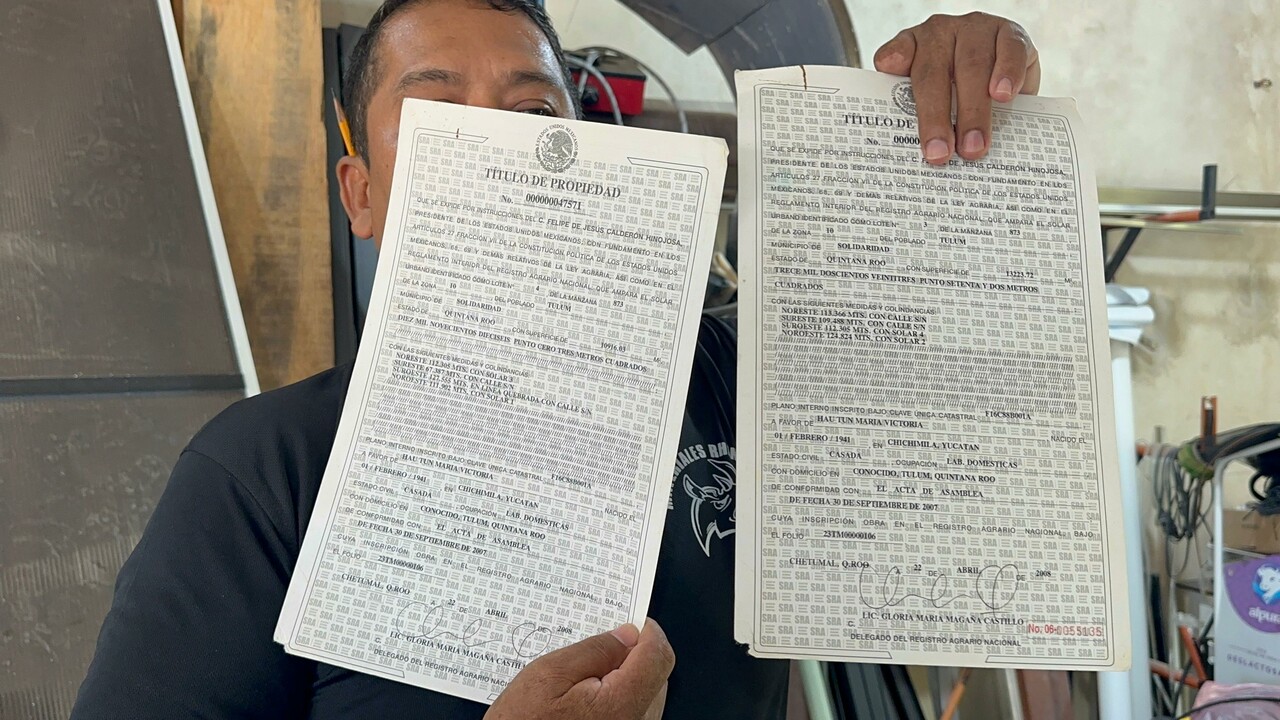 TÍTULO DE PROPIEDAD
No. 000000047571
QUE SE EXPIDE POR INSTRUCCIONES DEL C. FELIPE DE JESUS CALDERON HINOJOSA,
PRESIDENTE DE LOS ESTADOS UNIDOS MEXICANOS, CON FUNDAMENTO EN LOS
ARTICULOS 27 FRACCION VII DE LA CONSTITUCION POLITICA DE LOS ESTADOS UNIDOS
MEXICANOS, 68, 69 Y DEMAS RELATIVOS DE LA LEY AGRARIA, ASI COMO EN EL
REGLAMENTO INTERIOR DEL REGISTRO AGRARIO NACIONAL, QUE AMPARA EL SOLAR
URBANO IDENTIFICADO COMO LOTE N° 4 DE LA MANZANA 873
DE LA ZONA 10 DEL POBLADO TULUM
MUNICIPIO DE SOLIDARIDAD
ESTADO DE QUINTANA ROO CON SUPERFICIE DE 10916.03 M²
DIEZ MIL NOVECIENTOS DIECISEIS PUNTO CERO TRES METROS CUADRADOS
CON LAS SIGUIENTES MEDIDAS Y COLINDANCIAS:
NORESTE 112.305 MTS. CON SOLAR 3
SURESTE 67.387 MTS. CON CALLE S/N
SUROESTE MTS. EN LINEA QUEBRADA CON CALLE S/N
NOROESTE MTS. CON SOLAR 1
PLANO INTERNO INSCRITO BAJO CLAVE UNICA CATASTRAL F16C88B001A
A FAVOR DE HAU TUN MARIA VICTORIA NACIDO EL
01 / FEBRERO / 1941 EN CHICHIMILA, YUCATAN
ESTADO CIVIL CASADA OCUPACION LAB. DOMESTICAS
CON DOMICILIO EN CONOCIDO, TULUM, QUINTANA ROO
DE CONFORMIDAD CON: EL ACTA DE ASAMBLEA
DE FECHA 30 DE SEPTIEMBRE DE 2007
CUYA INSCRIPCION OBRA EN EL REGISTRO AGRARIO NACIONAL BAJO
EL FOLIO 23TM00000106
CHETUMAL, Q.ROO A 22 DE ABRIL DE 2008
LIC. GLORIA MARIA MAGAÑA CASTILLO
DELEGADO DEL REGISTRO AGRARIO
TÍTULO DE
No. 0000
QUE SE EXPIDE POR INSTRUCCIONES DEL C. DE JESUS CALDERON HINOJOSA,
PRESIDENTE DE LOS ESTADOS UNIDOS MEXICANOS, CON FUNDAMENTO EN LOS
ARTICULOS 27 FRACCION VII DE LA CONSTITUCION POLITICA DE LOS ESTADOS UNIDOS
MEXICANOS, 68, 69 Y DEMAS RELATIVOS DE LA LEY AGRARIA, ASI COMO EN EL
REGLAMENTO INTERIOR DEL REGISTRO AGRARIO NACIONAL, QUE AMPARA EL SOLAR
URBANO IDENTIFICADO COMO LOTE N° 3 DE LA MANZANA 873
DE LA ZONA 10 DEL POBLADO TULUM
MUNICIPIO DE SOLIDARIDAD
ESTADO DE QUINTANA ROO CON SUPERFICIE DE 13223.72 M²
TRECE MIL DOSCIENTOS VEINTITRES PUNTO SETENTA Y DOS METROS
CUADRADOS
CON LAS SIGUIENTES MEDIDAS Y COLINDANCIAS:
NORESTE 113.366 MTS. CON CALLE S/N
SURESTE 109.488 MTS. CON CALLE S/N
SUROESTE 112.305 MTS. CON SOLAR 4
NOROESTE 124.824 MTS. CON SOLAR 2
PLANO INTERNO INSCRITO BAJO CLAVE UNICA CATASTRAL F16C88B001A
A FAVOR DE HAU TUN MARIA VICTORIA NACIDO EL
01 / FEBRERO / 1941 EN CHICHIMILA, YUCATAN
ESTADO CIVIL CASADA OCUPACION LAB. DOMESTICAS
CON DOMICILIO EN CONOCIDO, TULUM, QUINTANA ROO
DE CONFORMIDAD CON: EL ACTA DE ASAMBLEA
DE FECHA 30 DE SEPTIEMBRE DE 2007
CUYA INSCRIPCION OBRA EN EL REGISTRO AGRARIO NACIONAL BAJO
EL FOLIO 23TM00000106
CHETUMAL, Q.ROO A 22 DE ABRIL DE 2008
C. LIC. GLORIA MARIA MAGAÑA CASTILLO
DELEGADO DEL REGISTRO AGRARIO NACIONAL
No. 06-055135
alpura
DESLACTOS